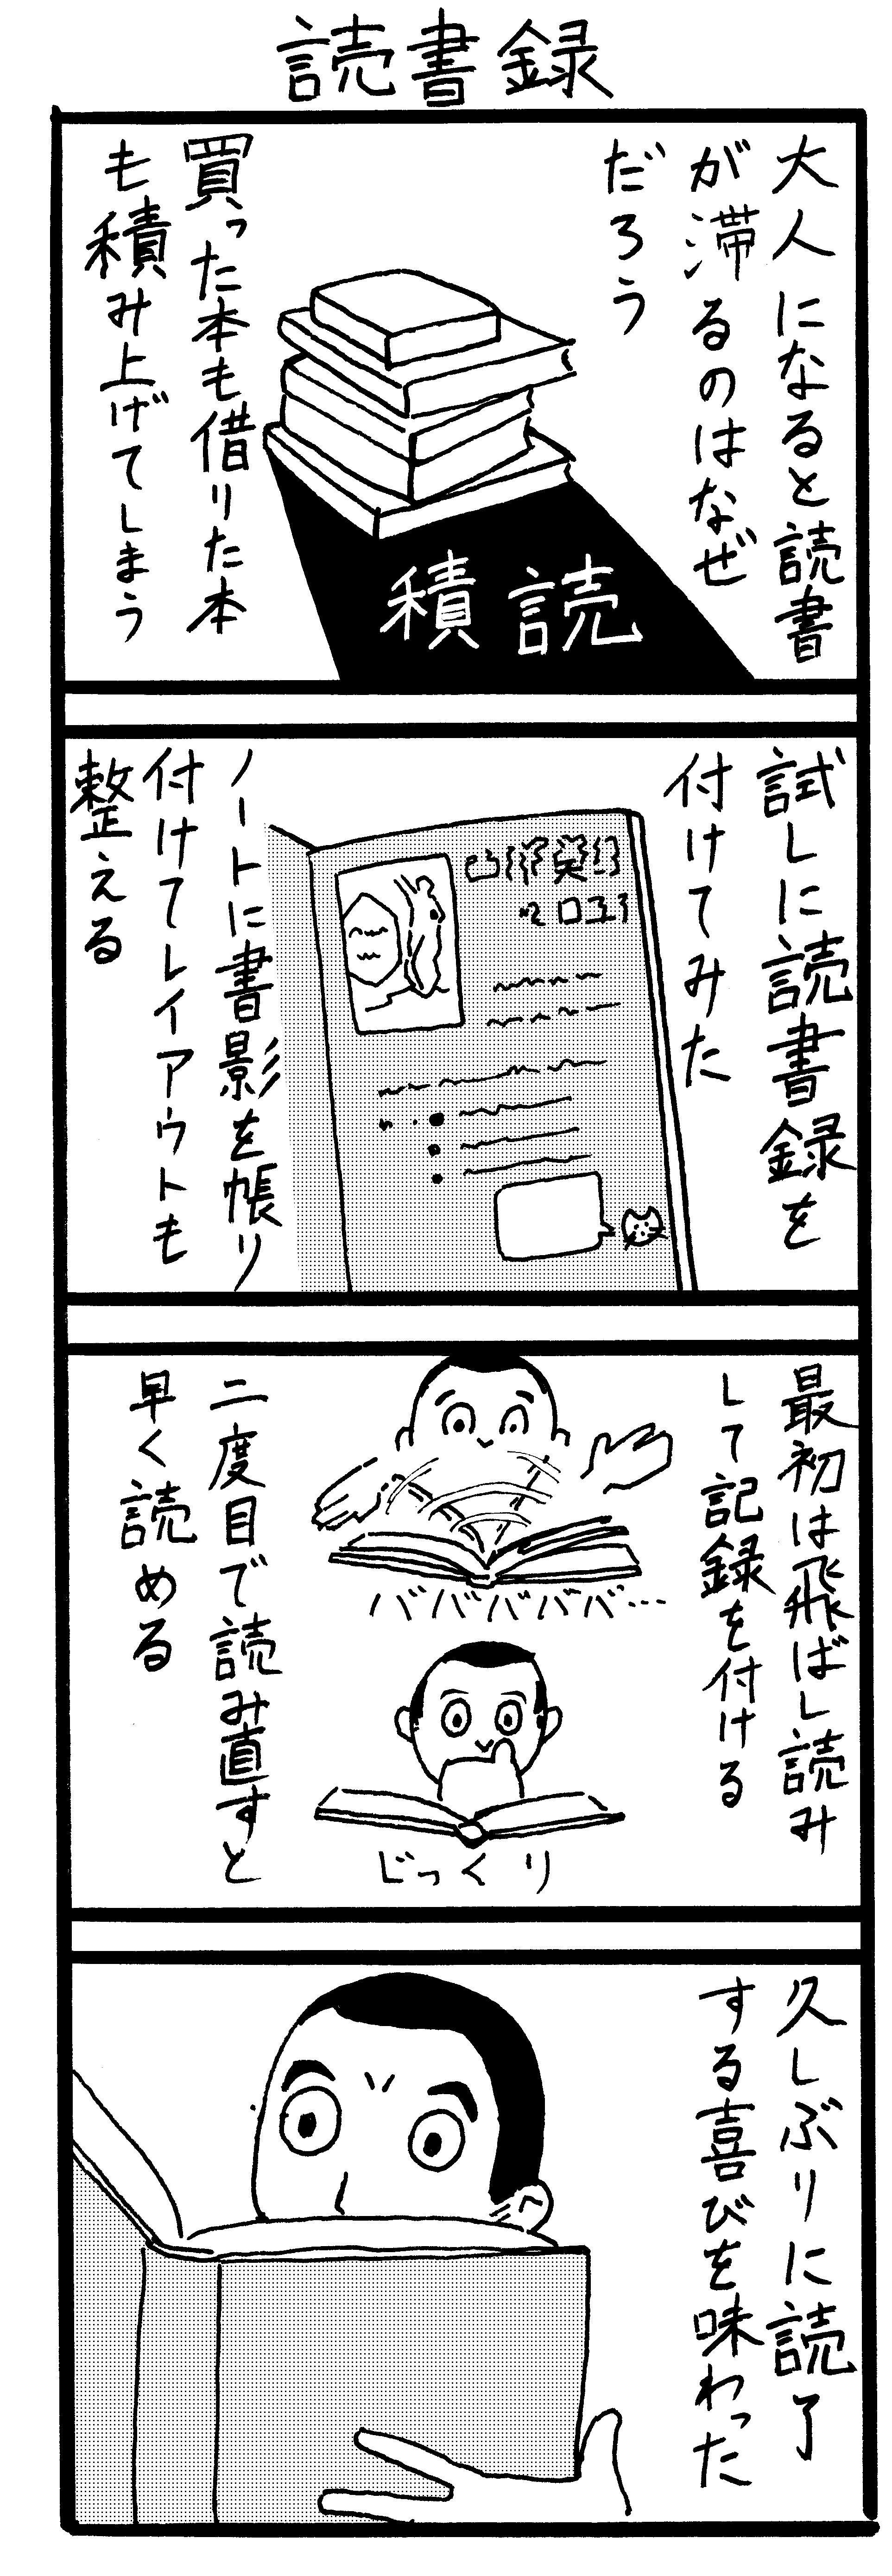 読書録
大人になると読書
が滞るのはなぜ
だろう
積読
買った本も借りた本
も積み上げてしまう
試しに読書録を
付けてみた
ノートに書影を帳り
付けてレイアウトも
整える
最初は飛ばし読み
して記録を付ける
ババババババ…
じっくり
二度目で読み直すと
早く読める
久しぶりに読了
する喜びを味わった